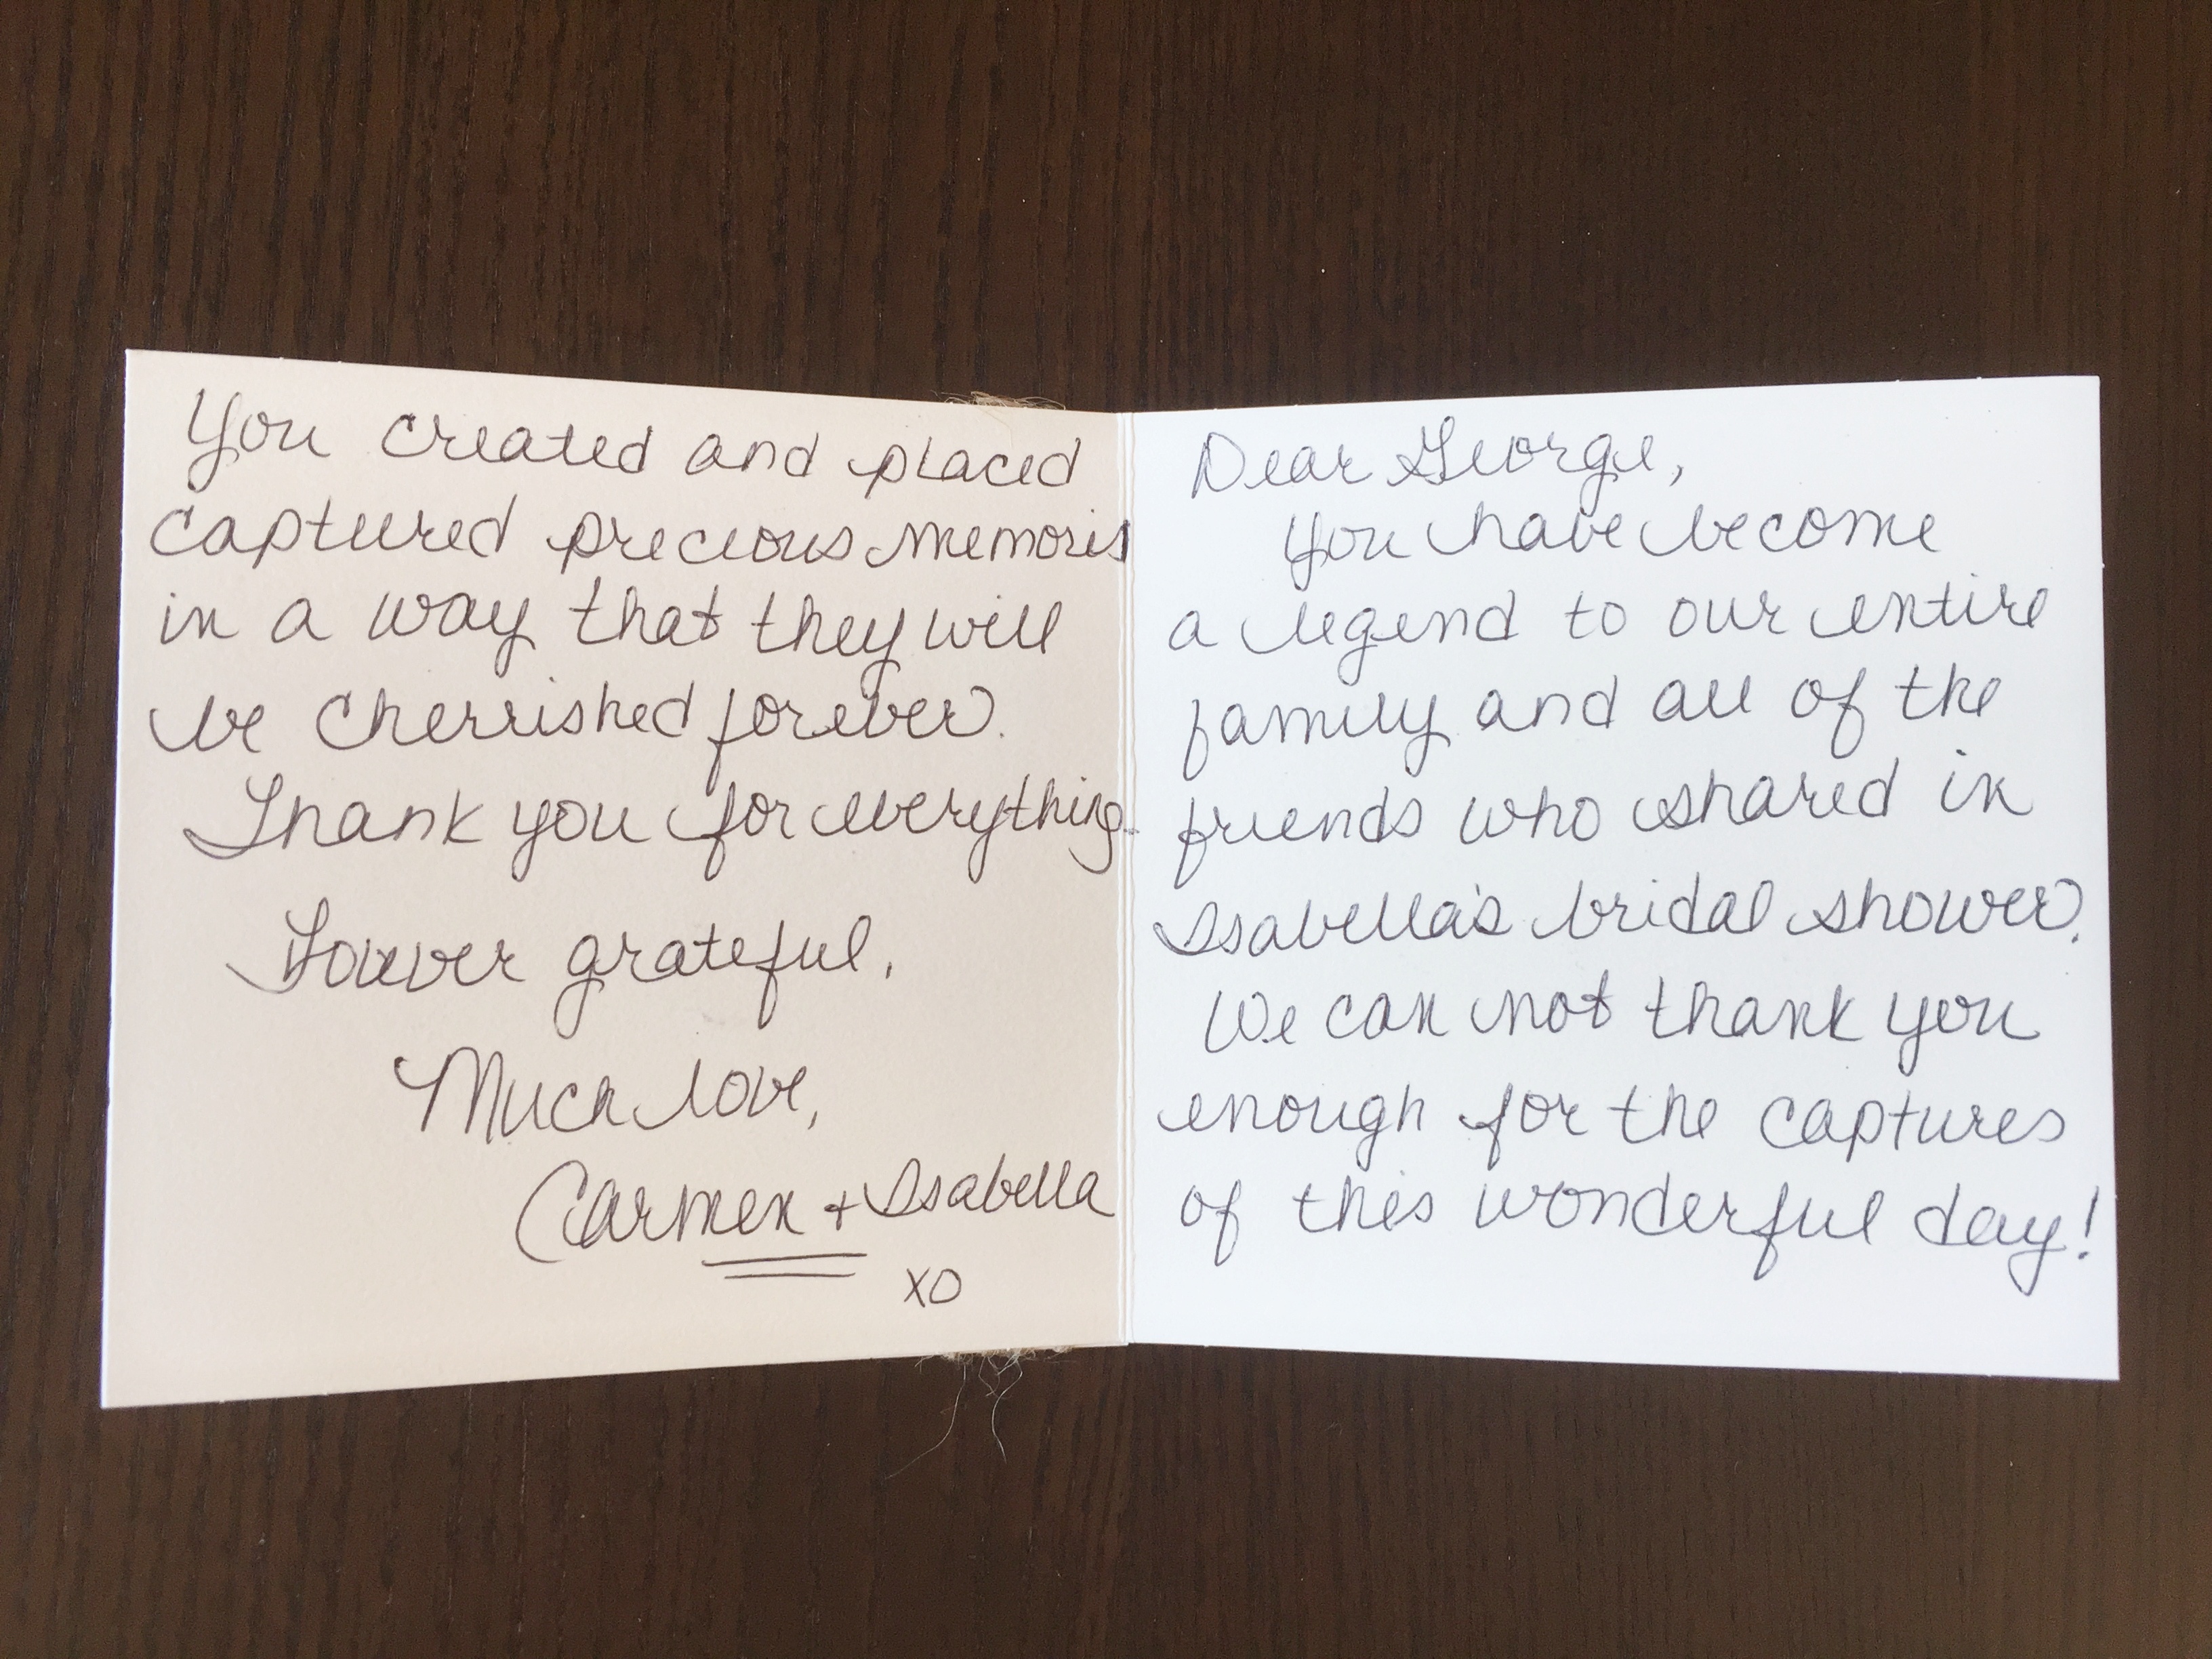 Dear George,
You have become
a legend to our entire
family and all of the
friends who shared in
Isabella's bridal shower.
We can not thank you
enough for the captures
of this wonderful day!
You created and placed
captured precious memoris
in a way that they will
be cherrished forever.
Thank you for everything.
Forever grateful.
Much love,
Carmen + Isabella
XO